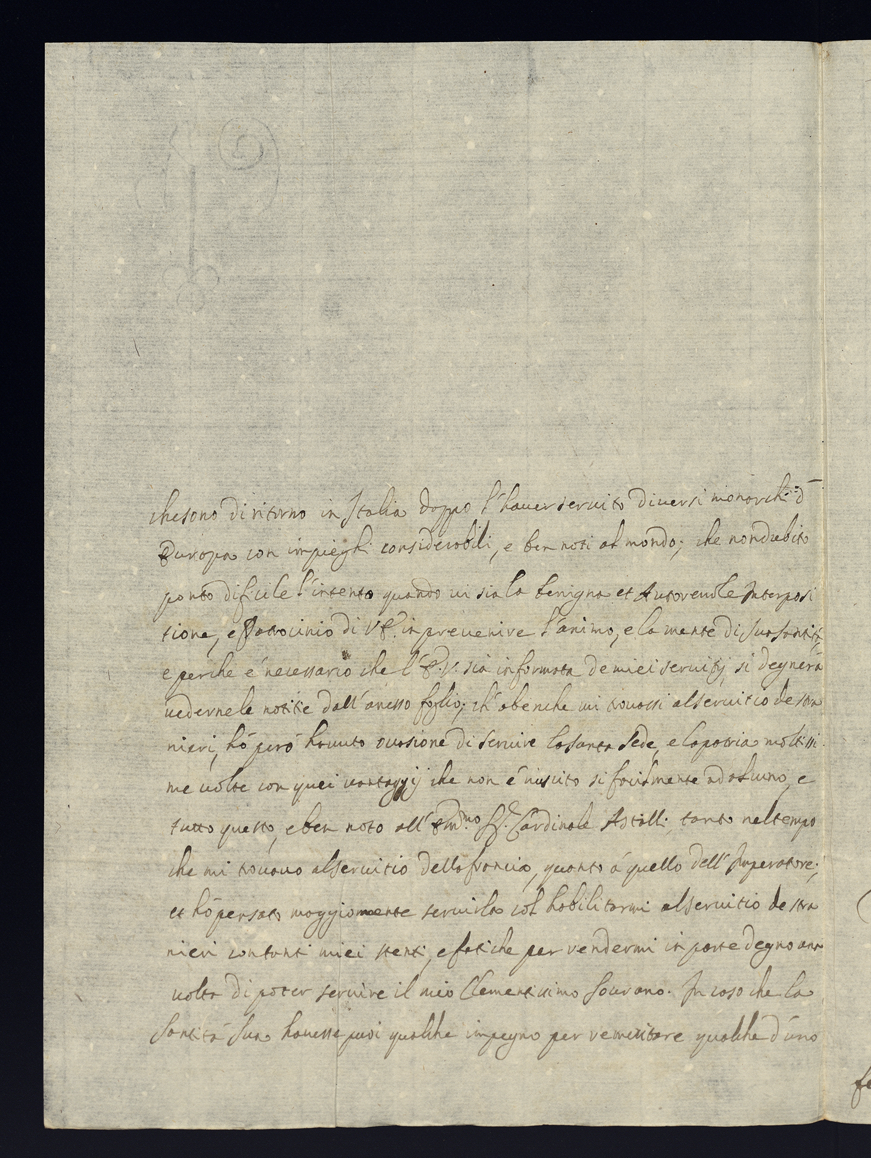 che sono di ritorno in Italia doppo l'haver servito diversi monarchi d'
Europa con impieghi considerabili, e ben noti al mondo; che non dubito
ponto dificile l'intento quando vi sia la benigna et Autorevole Interposi
tione, e Patrocinio di V.E. in prevenire l'animo, e la mente di Sua Santità,
e perche é necessario che l'E.V. sia informata de miei servitij si degnerà
vederne le notitie dall'anesso foglio; ch'abenche mi trovassi al servitio de stra
nieri, hò però havuto ocasione di servire la Santa Sede, e la patria moltissi
me volte con quei vantaggij che non é riuscito si facilmente ad alcuno, e
tutto questo, e ben noto all'Em.mo Sr. Cardinale Astalli, tanto nel tempo
che mi trovavo al servitio della francia, quanto á quello dell'Imperatore;
et hò pensato maggiormente servirla col habilitarmi al servitio de stra
nieri con tanti miei stenti, e fatiche per rendermi in parte degno una
volta di poter servire il mio Clementissimo Sovrano. In caso che la
Santità Sua havesse puoi qualche impegno per remeritare qualched'uno